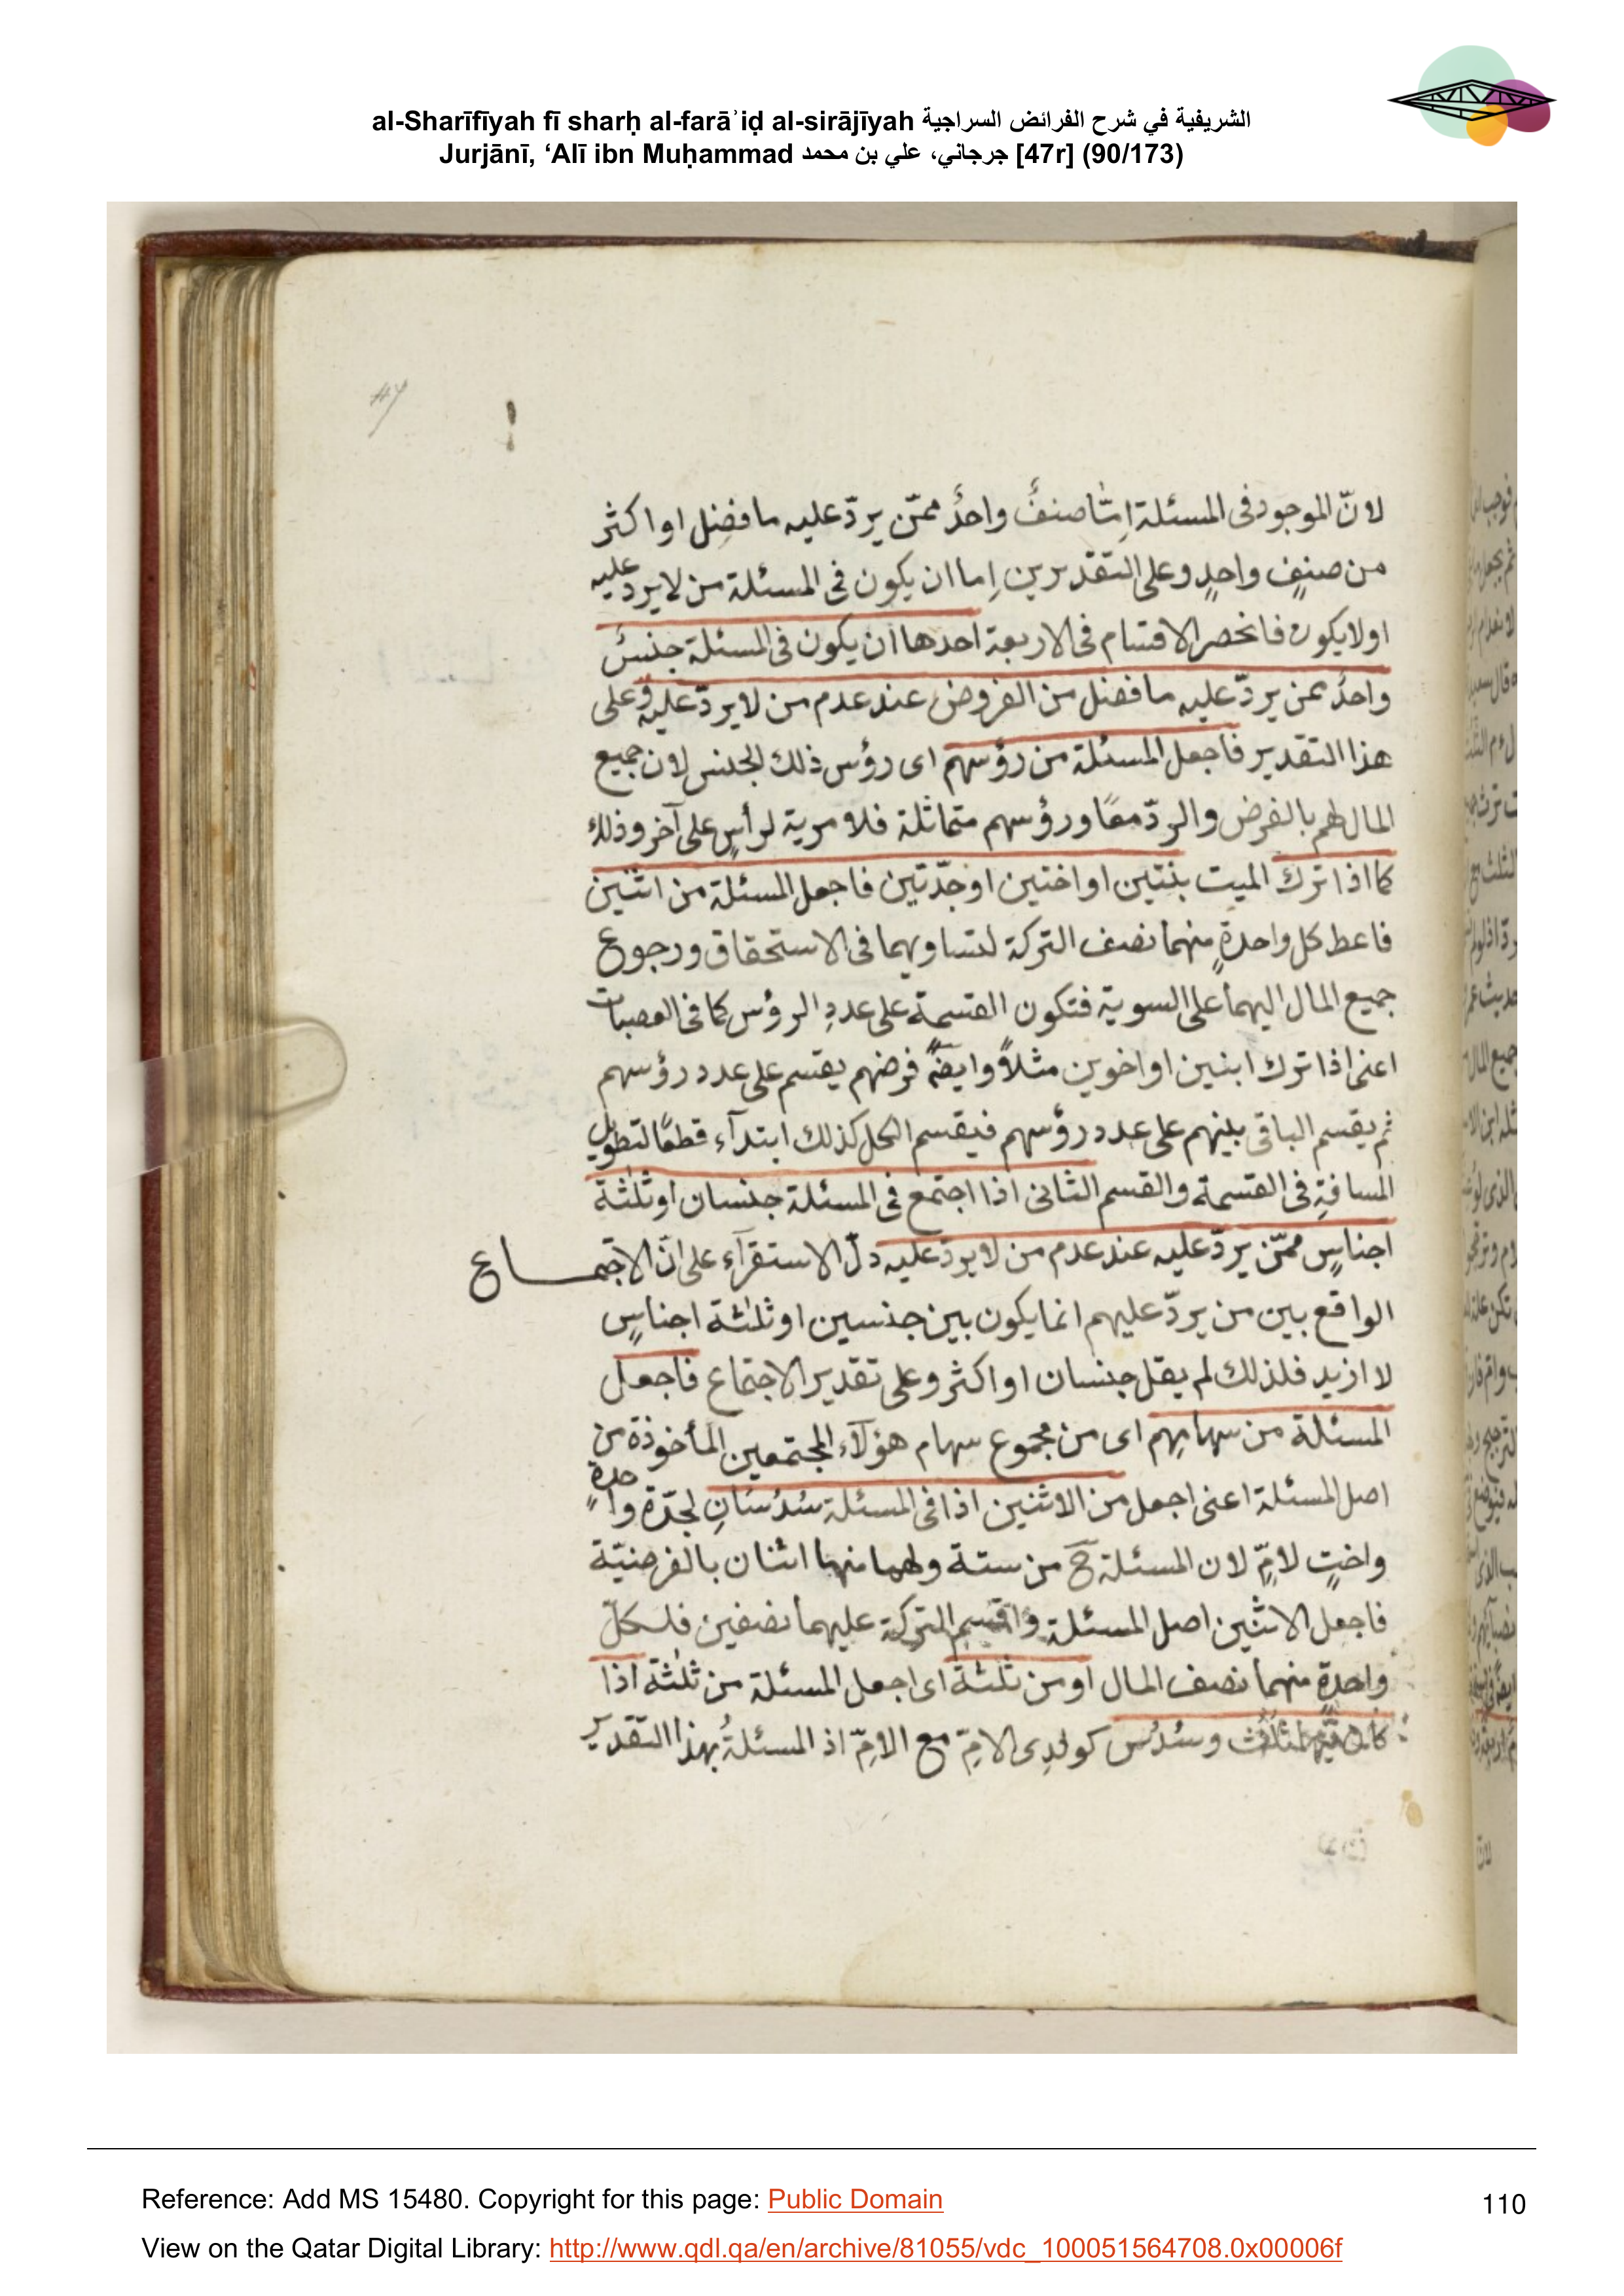 al-Sharīfīyah fī sharḥ al-farāʾiḍ al-sirājīyah الشريفية في شرح الفرائض السراجية
Jurjānī, ‘Alī ibn Muḥammad جرجاني، علي بن محمد [47r] (90/173)
47
لانّ الموجود فى المسئلة اِمّا صنفٌ واحدٌ ممّن يردّ عليه ما فضِل او اكثر
من صنفٍ واحدٍ وعلى التقديرين اِما ان يكون فى المسئلة من لا يرد عليه
اولا يكون فانحصر الاقسام فى الاربعة احدها ان يكون فى المسئلة جنسٌ
واحدٌ ممن يردّ عليه ما فضل من الفروض عند عدم من لا يردّ عليه وعلى
هذا التقدير فاجعل المسئلة من رؤسهم اى رؤس ذلك الجنس لان جميع
المال لهم بالفرض والردّ معًا ورؤسهم متماثلة فلا مزية لرأسٍ على آخر وذلك
كما اذا ترك الميت بنتين او اختين او جدّتين فاجعل المسئلة من اثنين
فاعط كل واحدةٍ منهما نصف التركة لتساويهما فى الاستحقاق ورجوع
جميع المال اليهما على السوية فتكون القسمة على عددِ الرؤس كما فى العصبات
اعنى اذا ترك ابنين او اخوين مثلاً وايضًا فرضهم يقسم على عدد رؤسهم
ثم يقسم الباقى بينهم على عدد رؤسهم فيقسم الكل كذلك ابتدآء قطعًا لتطويل
المسافةِ فى القسمة والقسم الثانى اذا اجتمع فى المسئلة جنسان او ثلٰثة
اجناسٍ ممّن يردّ عليه عند عدم من لا يردّ عليه دلّ الاستقرآء على انّ الاجتماع
الواقع بين من يردّ عليهم انما يكون بين جنسين او ثلٰثة اجناسٍ
لا ازيد فلذلك لم يقل جنسان او اكثر وعلى تقدير الاجتماع فاجعل
المسئلة من سهامِهم اى من مجموع سهام هؤلآء المجتمعين المأخوذة من
اصل المسئلة اعنى اجعل من الاثنين اذا فى المسئلة سُدُسَانِ لجدّة واحدةٍ
واختٍ لامٍّ لان المسئلة ح من ستة ولهما منها اثنان بالفرضيّة
فاجعل الاثنين اصل المسئلة واقسم التركة عليهما نصفين فلكلّ
واحدةٍ منهما نصف المال او من ثلٰثة اى اجعل المسئلة من ثلٰثة اذا
كان فيها ثلُث وسُدُس كولدِى الامّ مع الامّ اذ المسئلةُ بهذا التقدير
Reference: Add MS 15480. Copyright for this page: Public Domain
110
View on the Qatar Digital Library: http://www.qdl.qa/en/archive/81055/vdc_100051564708.0x00006f